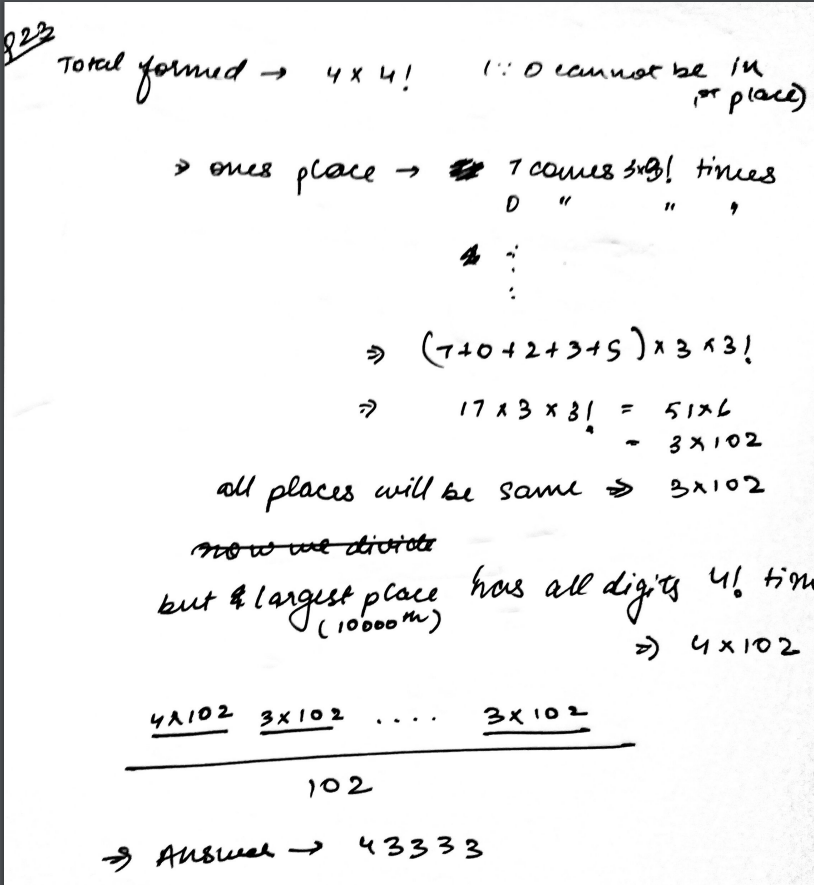 Q23
Total formed → 4 x 4! (∵ 0 cannot be in
1st place)
⇒ ones place → 7 comes 3x3! times
0 " " "
⋮
⇒ (7+0+2+3+5) x 3 x 3!
⇒ 17 x 3 x 3! = 51x6
= 3x102
all places will be same ⇒ 3x102
now we divide
but largest place has all digits 4! tim
(10000th)
⇒ 4x102
4x102 3x102 .... 3x102
102
⇒ Answer → 43333